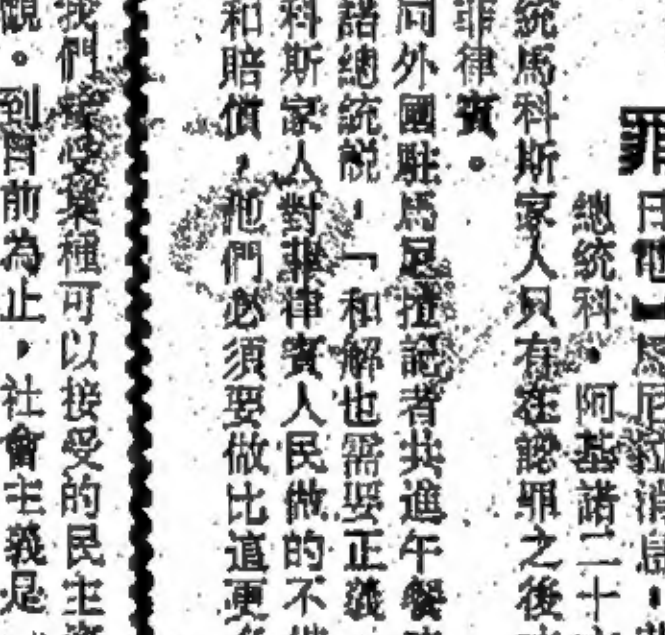 罪
日電】馬尼拉消息，
總統科·阿基諾二十
統馬科斯家人只有在認罪之後
菲律賓。
同外國駐馬尼拉記者共進午餐
諾總統說，「和解也需要正義
科斯家人對菲律賓人民做的不
和賠償，他們必須要做比這更
我們接受某種可以接受的民主
觀。到目前為止，社會主義是